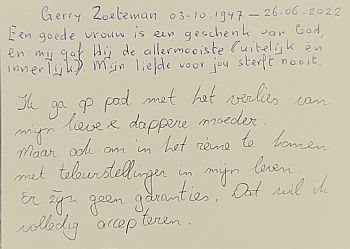 Gerry Zoeteman 03-10-1947 - 26-06-2022
Een goede vrouw is een geschenk van God,
en mij gaf Hij de allermooiste (uiterlijk én
innerlijk). Mijn liefde voor jou sterft nooit.
Ik ga op pad met het verlies van
mijn lieve & dappere moeder.
Maar ook om in het reine te komen
met teleurstellingen in mijn leven.
Er zijn geen garanties. Dat wil ik
volledig accepteren.